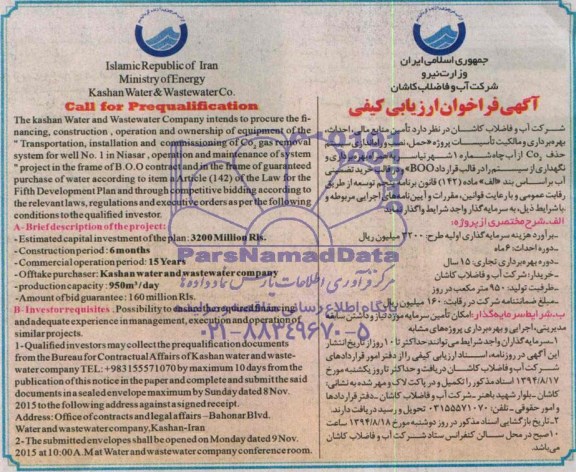 Islamic Republic of Iran
Ministry of Energy
Kashan Water & Wastewater Co.
Call for Prequalification
The kashan Water and Wastewater Company intends to procure the fi-
nancing, construction , operation and ownership of equipment of the
" Transportation, installation and commissioning of Co2 gas removal
system for well No. 1 in Niasar , operation and maintenance of system
" project in the frame of B.O.O contract and in the frame of guaranteed
purchase of water according to item A article (142) of the Law for the
Fifth Development Plan and through competitive bidding according to
the relevant laws, regulations and executive orders as per the following
conditions to the qualified investor.
A- Brief description of the project:
- Estimated capital investment of the plan: 3200 Million Rls.
- Construction period : 6 months
- Commercial operation period: 15 Years
- Offtake purchaser: Kashan water and wastewater company
- production capacity : 950m³ / day
- Amount of bid guarantee : 160 million Rls.
B- Investor requisites . Possibility to
and adequate experience in management, execution and operation of
similar projects.
1- Qualified investors may collect the prequalification documents
from the Bureau for Contractual Affairs of Kashan water and waste-
water company TEL: +983155571070 by maximum 10 days from the
publication of this notice in the paper and complete and submit the said
documents in a sealed envelope maximum by Sunday dated 8 Nov.
2015 to the following address against a signed receipt.
Address: Office of contracts and legal affairs – Bahonar Blvd.
Water and wastewater company, Kashan-Iran
2- The submitted envelopes shall be opened on Monday dated 9 Nov.
2015 at 10:00 A.M at Water and wastewater company conference room.
جمهوری اسلامی ایران
وزارت نیرو
شرکت آب و فاضلاب کاشان
آگهی فراخوان ارزیابی کیفی
شرکت آب و فاضلاب کاشان در نظر دارد تأمین منابع مالی، احداث،
بهره‌برداری و مالکیت تأسیسات پروژه «حمل، نصب و راه‌اندازی
حذف Co2 از آب چاه شماره ۱ شهر نیاسر، بهره‌برداری و
نگهداری از سیستم» را در قالب قرارداد BOO و خرید تضمینی
آب براساس بند «الف» ماده (۱۴۲) قانون برنامه پنجم توسعه از طریق
رقابت عمومی و با رعایت قوانین، مقررات و آیین‌نامه‌های اجرایی مربوطه و
با شرایط ذیل، به سرمایه‌گذار واجد شرایط واگذار نماید.
الف. شرح مختصری از پروژه:
ـ برآورد هزینه سرمایه‌گذاری اولیه طرح: ۳۲۰۰ میلیون ریال
ـ دوره احداث: ۶ ماه
ـ دوره بهره‌برداری تجاری: ۱۵ سال
ـ خریدار: شرکت آب و فاضلاب کاشان
ـ ظرفیت تولید: ۹۵۰ متر مکعب در روز
ـ مبلغ ضمانتنامه شرکت در رقابت: ۱۶۰ میلیون ریال
ب. شرایط سرمایه‌گذار: امکان تأمین سرمایه مورد نیاز و داشتن سابقه
مدیریتی، اجرایی و بهره‌برداری پروژه‌های مشابه
۱ـ سرمایه‌گذاران واجد شرایط می‌توانند حداکثر تا ۱۰ روز از تاریخ انتشار
این آگهی در روزنامه، اسناد ارزیابی کیفی را از دفتر امور قراردادهای
شرکت آب و فاضلاب کاشان دریافت و حداکثر تا روز یکشنبه مورخ
۱۳۹۴/۸/۱۷ اسناد مذکور را تکمیل و در پاکت لاک و مهر شده به نشانی:
کاشان ـ بلوار شهید باهنر ـ شرکت آب و فاضلاب کاشان ـ دفتر قراردادها
و امور حقوقی ـ تلفن: ۰۳۱۵۵۵۷۱۰۷۰ تحویل و رسید دریافت دارند.
۲ـ تاریخ بازگشایی اسناد مذکور در روز دوشنبه مورخ ۱۳۹۴/۸/۱۸ ساعت
۱۰ صبح در محل سالن کنفرانس ستاد شرکت آب و فاضلاب کاشان
می‌باشد.
ParsNamadData
مرکز فرآوری اطلاعات پارس نماد داده‌ها
پایگاه اطلاع رسانی
۰۲۱-۸۸۳۴۹۶۷۰-۵